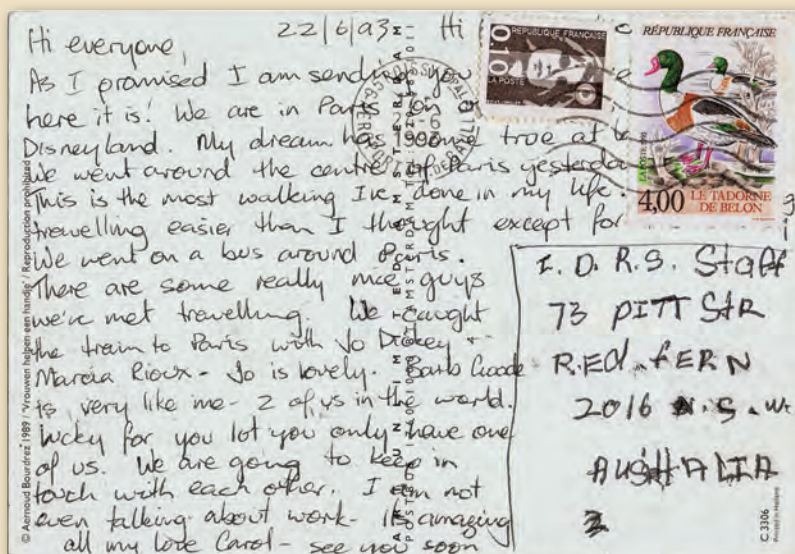 22/6/93 Hi
Hi everyone,
As I promised I am sending you
here it is! We are in Paris on a
Disneyland. My dream has come true at
We went around the centre of Paris yesterday
This is the most walking I've done in my life.
travelling easier than I thought except for
We went on a bus around Paris.
There are some really nice guys
we've met travelling. We caught
the train to Paris with Jo Dickey +
Marcia Rioux - Jo is lovely. Barb Goode
is very like me - 2 of us in the world.
lucky for you lot you only have one
of us. We are going to keep in
touch with each other. I am not
even talking about work - its amazing
all my love Carol - see you soon
I. D. R. S. Staff
73 PITT StR
R.Ed. fERN
2016 N.S.W.
AUSTRALIA
0,10
REPUBLIQUE FRANÇAISE
LA POSTE
RÉPUBLIQUE FRANÇAISE
4,00 LE TADORNE
DE BELON
© Aernoud Bourdrez 1989 / 'Vrouwen helpen een handje' / Reproduction prohibited
C 3306
Printed in Holland